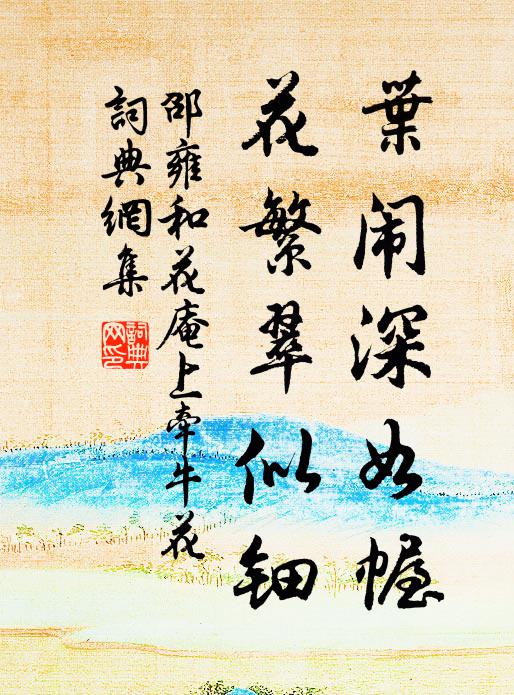 葉闹深如幄
花繁翠似钿
邵雍和花庵上牵牛花
詞典網集
詞典网印